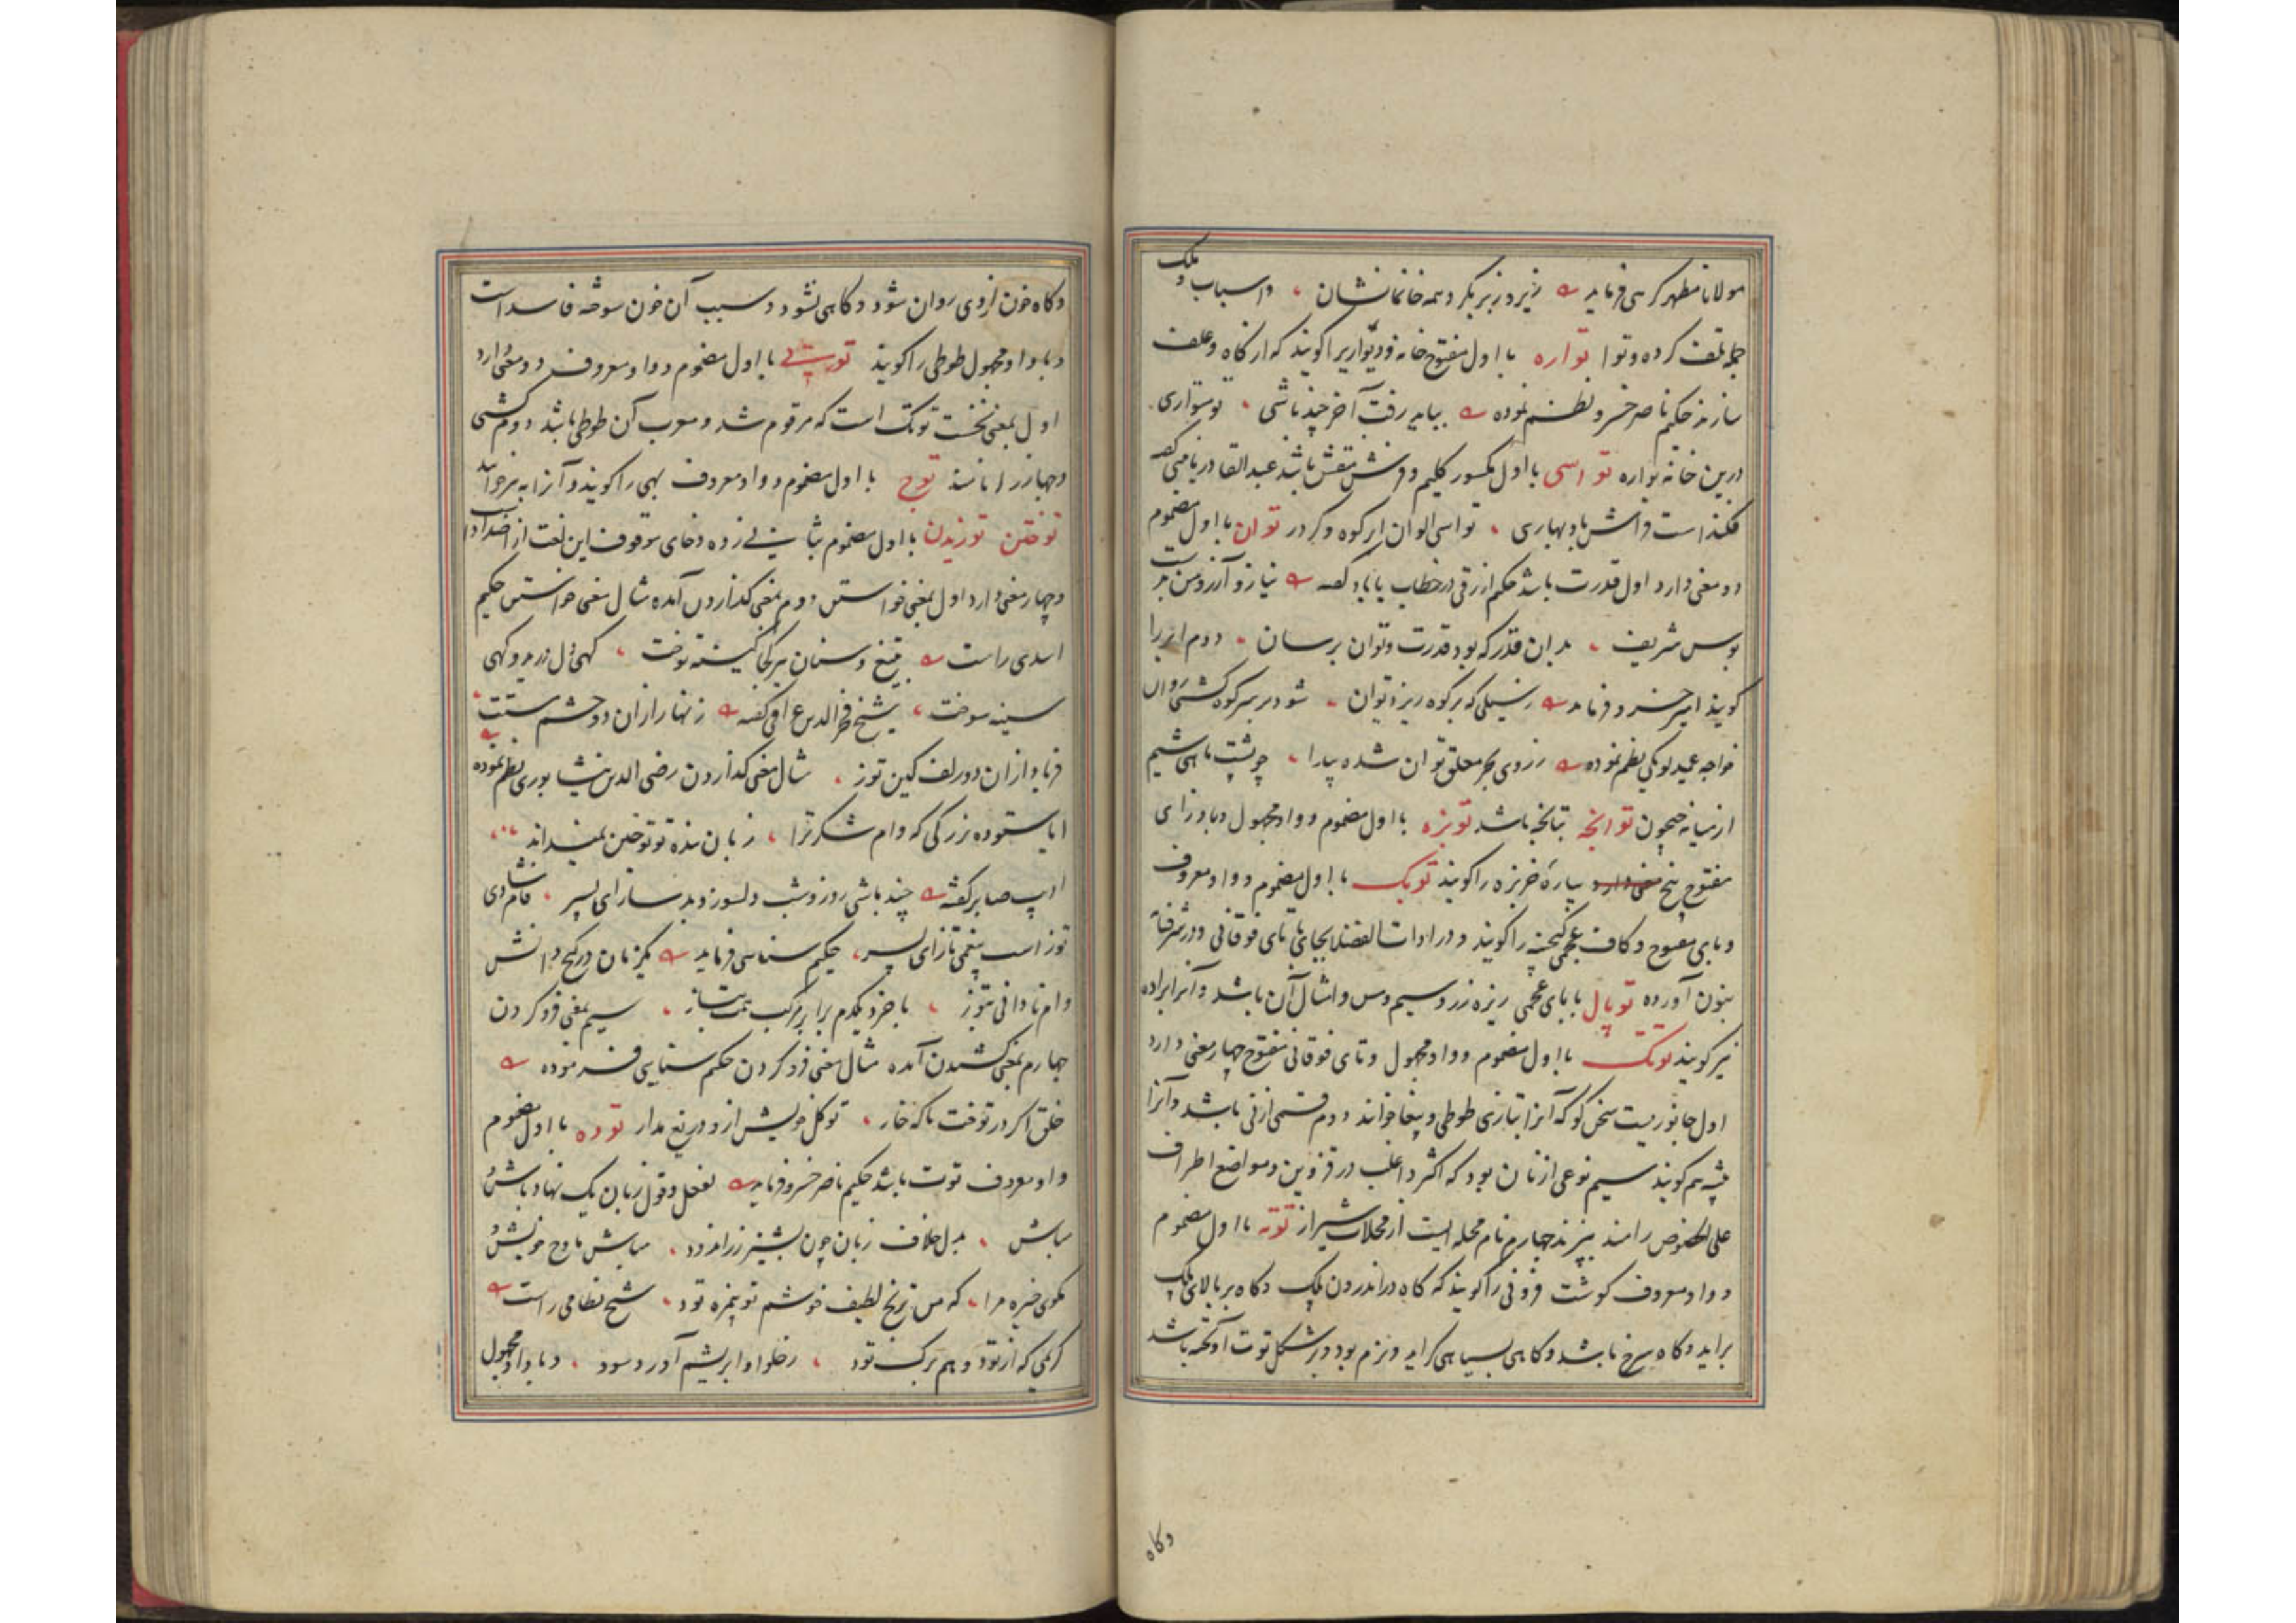 مولانا مطهر کرهی فرماید زیر و زبر بکرد همه خانمانشان واسباب و ملک
جمله تلف کرده و توا تواره با اول مفتوح خانه و دیواریرا کویند که از کاه و علف
سازند حکیم ناصر خسرو نظم نموده بیابه رفت آخر چند باشی تو متواری
درین خانه تواره تو اسی با اول مکسور کلیم و فرش منقش باشد عبدالقادر نامنی کفته
فکنداست فراش باد بهاری تواسی الوان ابر کوه و کردر توان با اول مضموم
دو معنی دارد اول قدرت باشد حکیم ازرقی در خطاب باباد کفته نیاز و آرزو من بدست
بوس شریف بدان قدر که بود قدرت و توان برسان دوم ابر را
کویند امیر خسرو فرماید سیلی که بر کوه ریزد توان شود بر سر کوه کشتی روان
خواجه عمید لوبکی نظم نموده ز روی بحر معلق توان شده پیدا چو پشت ماهی شیم
از میانه جیحون توانچه تپانچه باشد توبزه با اول مضموم و واو مجهول و با و زای
مفتوح پنج معنی دارد بیاره خربزه را کویند توبک با اول مضموم و واو معروف
و بای مفتوح و کاف عجمی کنجینه را کویند و در ادات الفضلا بجای تا تای فوقانی و در شرفنامه
بنون آورده توپال با بای عجمی ریزه زر و سیم و مس و امثال آن باشد و آنرا براده
نیز کویند توتک با اول مضموم و واو مجهول و تای فوقانی مفتوح چهار معنی دارد
اول جانوریست سخن کو که آنرا بتازی طوطی و ببغا خوانند دوم قسمی از نی باشد و آنرا
بیشه هم کویند سیم نوعی از نان بود که اکثر و اغلب در قزوین و مواضع اطراف
علی الخصوص رامند بپزند چهارم نام محله ایست از محلات شیراز توته با اول مضموم
و واو معروف کوشت فزونی را کویند که کاه در اندرون پلک و کاه بر بالای پلک
براید و کاه سرخ باشد و کاهی بسیاهی کراید و نرم بود و بر شکل توت آویخته باشد
وکاه
وکاه خون از وی روان شود و کاهی نشود و سبب آن خون سوخته فاسد است
و با واو مجهول طوطی را کویند توتی با اول مضموم و واو معروف دو معنی دارد
اول بمعنی نخست توتک است که مرقوم شد و معرب آن طوطی باشد دوم کشتی
و جهاز را نامند توج با اول مضموم و واو معروف بهی را کویند و آنرا به نیز خوانند
توختن توزیدن با اول مضموم بثانی زده و خای موقوف این لغت از اضداد است
و چهار معنی دارد اول بمعنی خواستن دوم بمعنی کذاردن آمده مثال معنی خواستن حکیم
اسدی راست بتیغ و سنان هر کجا کینه توخت کهی دل درید و کهی
سینه سوخت شیخ فخرالدین عراقی کفته زنهار از ان دو چشم مستت
فریاد از ان دو زلف کین توز مثال معنی کذاردن رضی الدین نیشابوری نظم نموده
ایا ستوده بزرکی که وام شکر ترا زبان بنده تو توختن نمیداند
ادیب صابر کفته چند باشی روز و شب دلسوز و بد ساز ای پسر وام شادی
توز است بیغمی تاز ای پسر حکیم سنایی فرماید یکزمان در کنج دانش
وام نادانی بتوز با خرد یکدم برابر مرکب همت بتاز سیم بمعنی فرو کردن
چهارم بمعنی کشیدن آمده مثال معنی فرو کردن حکیم سنایی فرموده
خلق اکر در توخت ناکه خار تو کل خویش از و دریغ مدار توده با اول مضموم
و واو معروف توت باشد حکیم ناصر خسرو فرماید بفعل و قول زبان یک نهاد باش و
مباش بدل خلاف زبان چون پشیز زر اندود مباش مادح خویش و
مکوی خیره مرا که من ترنج لطیف خوشم تو بیمزه تود شیخ نظامی راست
کرمی که از تود و هم برک تود ز حلوا و ابریشم آورد سود و با واو مجهول